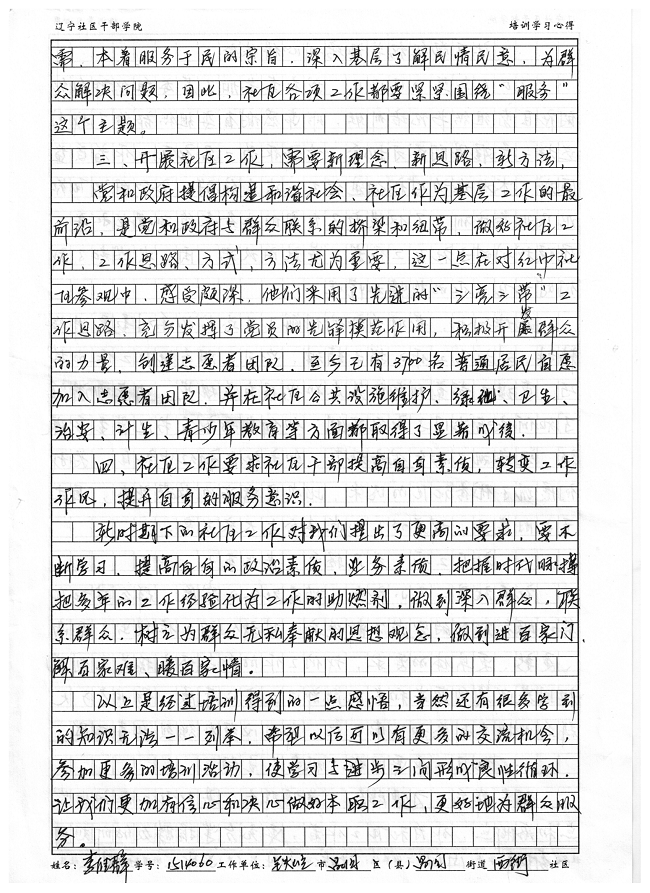 辽宁社区干部学院 培训学习心得
本着服务于民的宗旨，深入基层了解民情民意，为群
众解决问题，因此，社区各项工作都要紧紧围绕“服务”
这个主题。
三、开展社区工作，需要新理念、新思路、新方法，
党和政府提倡构建和谐社会，社区作为基层工作的最
前沿，是党和政府与群众联系的桥梁和纽带，做好社区工
作，工作思路、方式，方法尤为重要，这一点在对红中社
区参观中，感受颇深，他们采用了先进的“三变三带”工
作思路，充分发挥了党员的先锋模范作用，积极开发群众
的力量，创建志愿者团队，至今已有3700名普通居民自愿
加入志愿者团队，并在社区公共设施维护、绿地、卫生、
治安、计生、青少年教育等方面都取得了显著成绩．
四、在区工作要求社区干部提高自身素质，转变工作
作风，提升自身的服务意识．
新时期下的社区工作对我们提出了更高的要求，要不
断学习，提高自身的政治素质，业务素质，把握时代脉搏
把多年的工作经验化为工作的助燃剂，做到深入群众，联
系群众，树立为群众无私奉献的思想观念，做到进百家门、
解百家难、暖百家情。
以上是经过培训得到的一点感悟，当然还有很多学到
的知识无法一一列举，希望以后可以有更多的交流机会，
参加更多的培训活动，使学习与进步之间形成良性循环．
让我们更加有信心和决心做好本职工作，更好地为群众服
务。
姓名： 学号：1514060 工作单位： 市 区（县） 街道 西街 社区